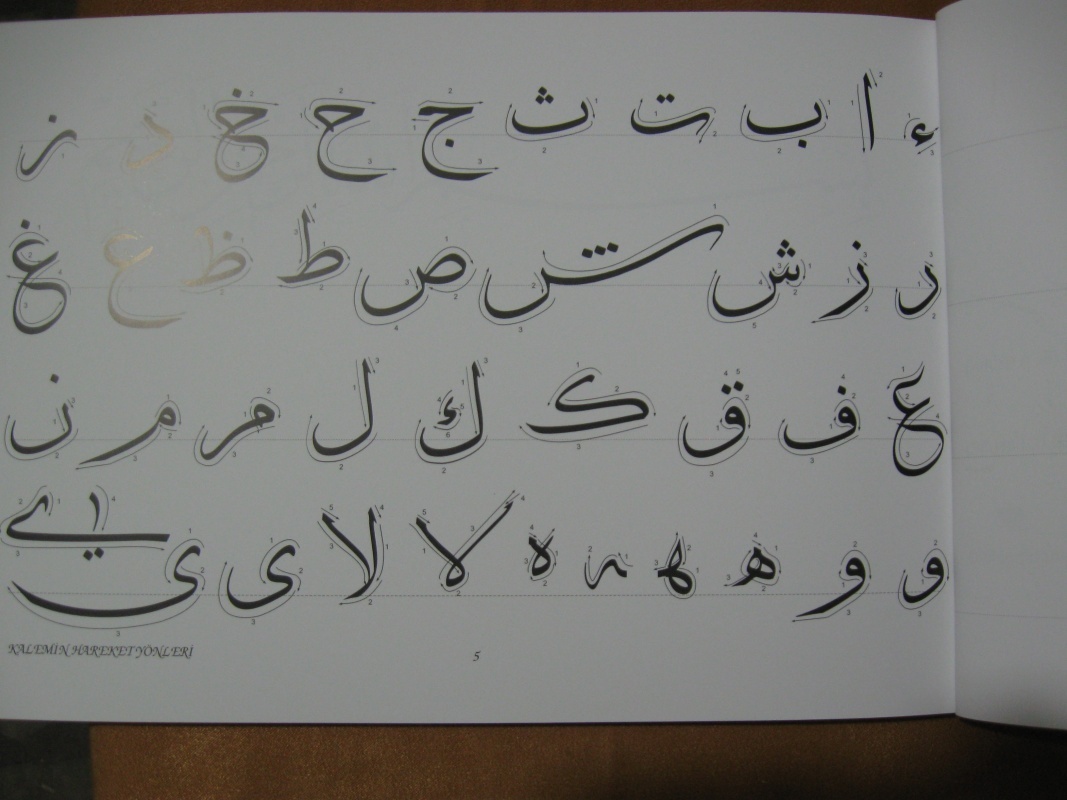 ء ا ب ت ث ج ح خ د ز
ر ز ش ش ص ط ظ ع غ
ع ف ق ك ك ل م م ن
و و ه ه ه ه لا لا ى ى ي
KALEMİN HAREKET YÖNLERİ
5